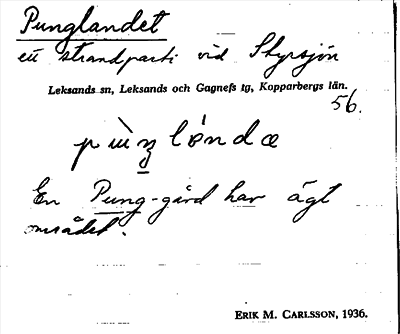 Punglandet
ett strandparti vid Styrsjön
Leksands sn, Leksands och Gagnefs tg, Kopparbergs län.
56.
pùŋlòndæ
En Pung-gård har ägt
området.
ERIK M. CARLSSON, 1936.